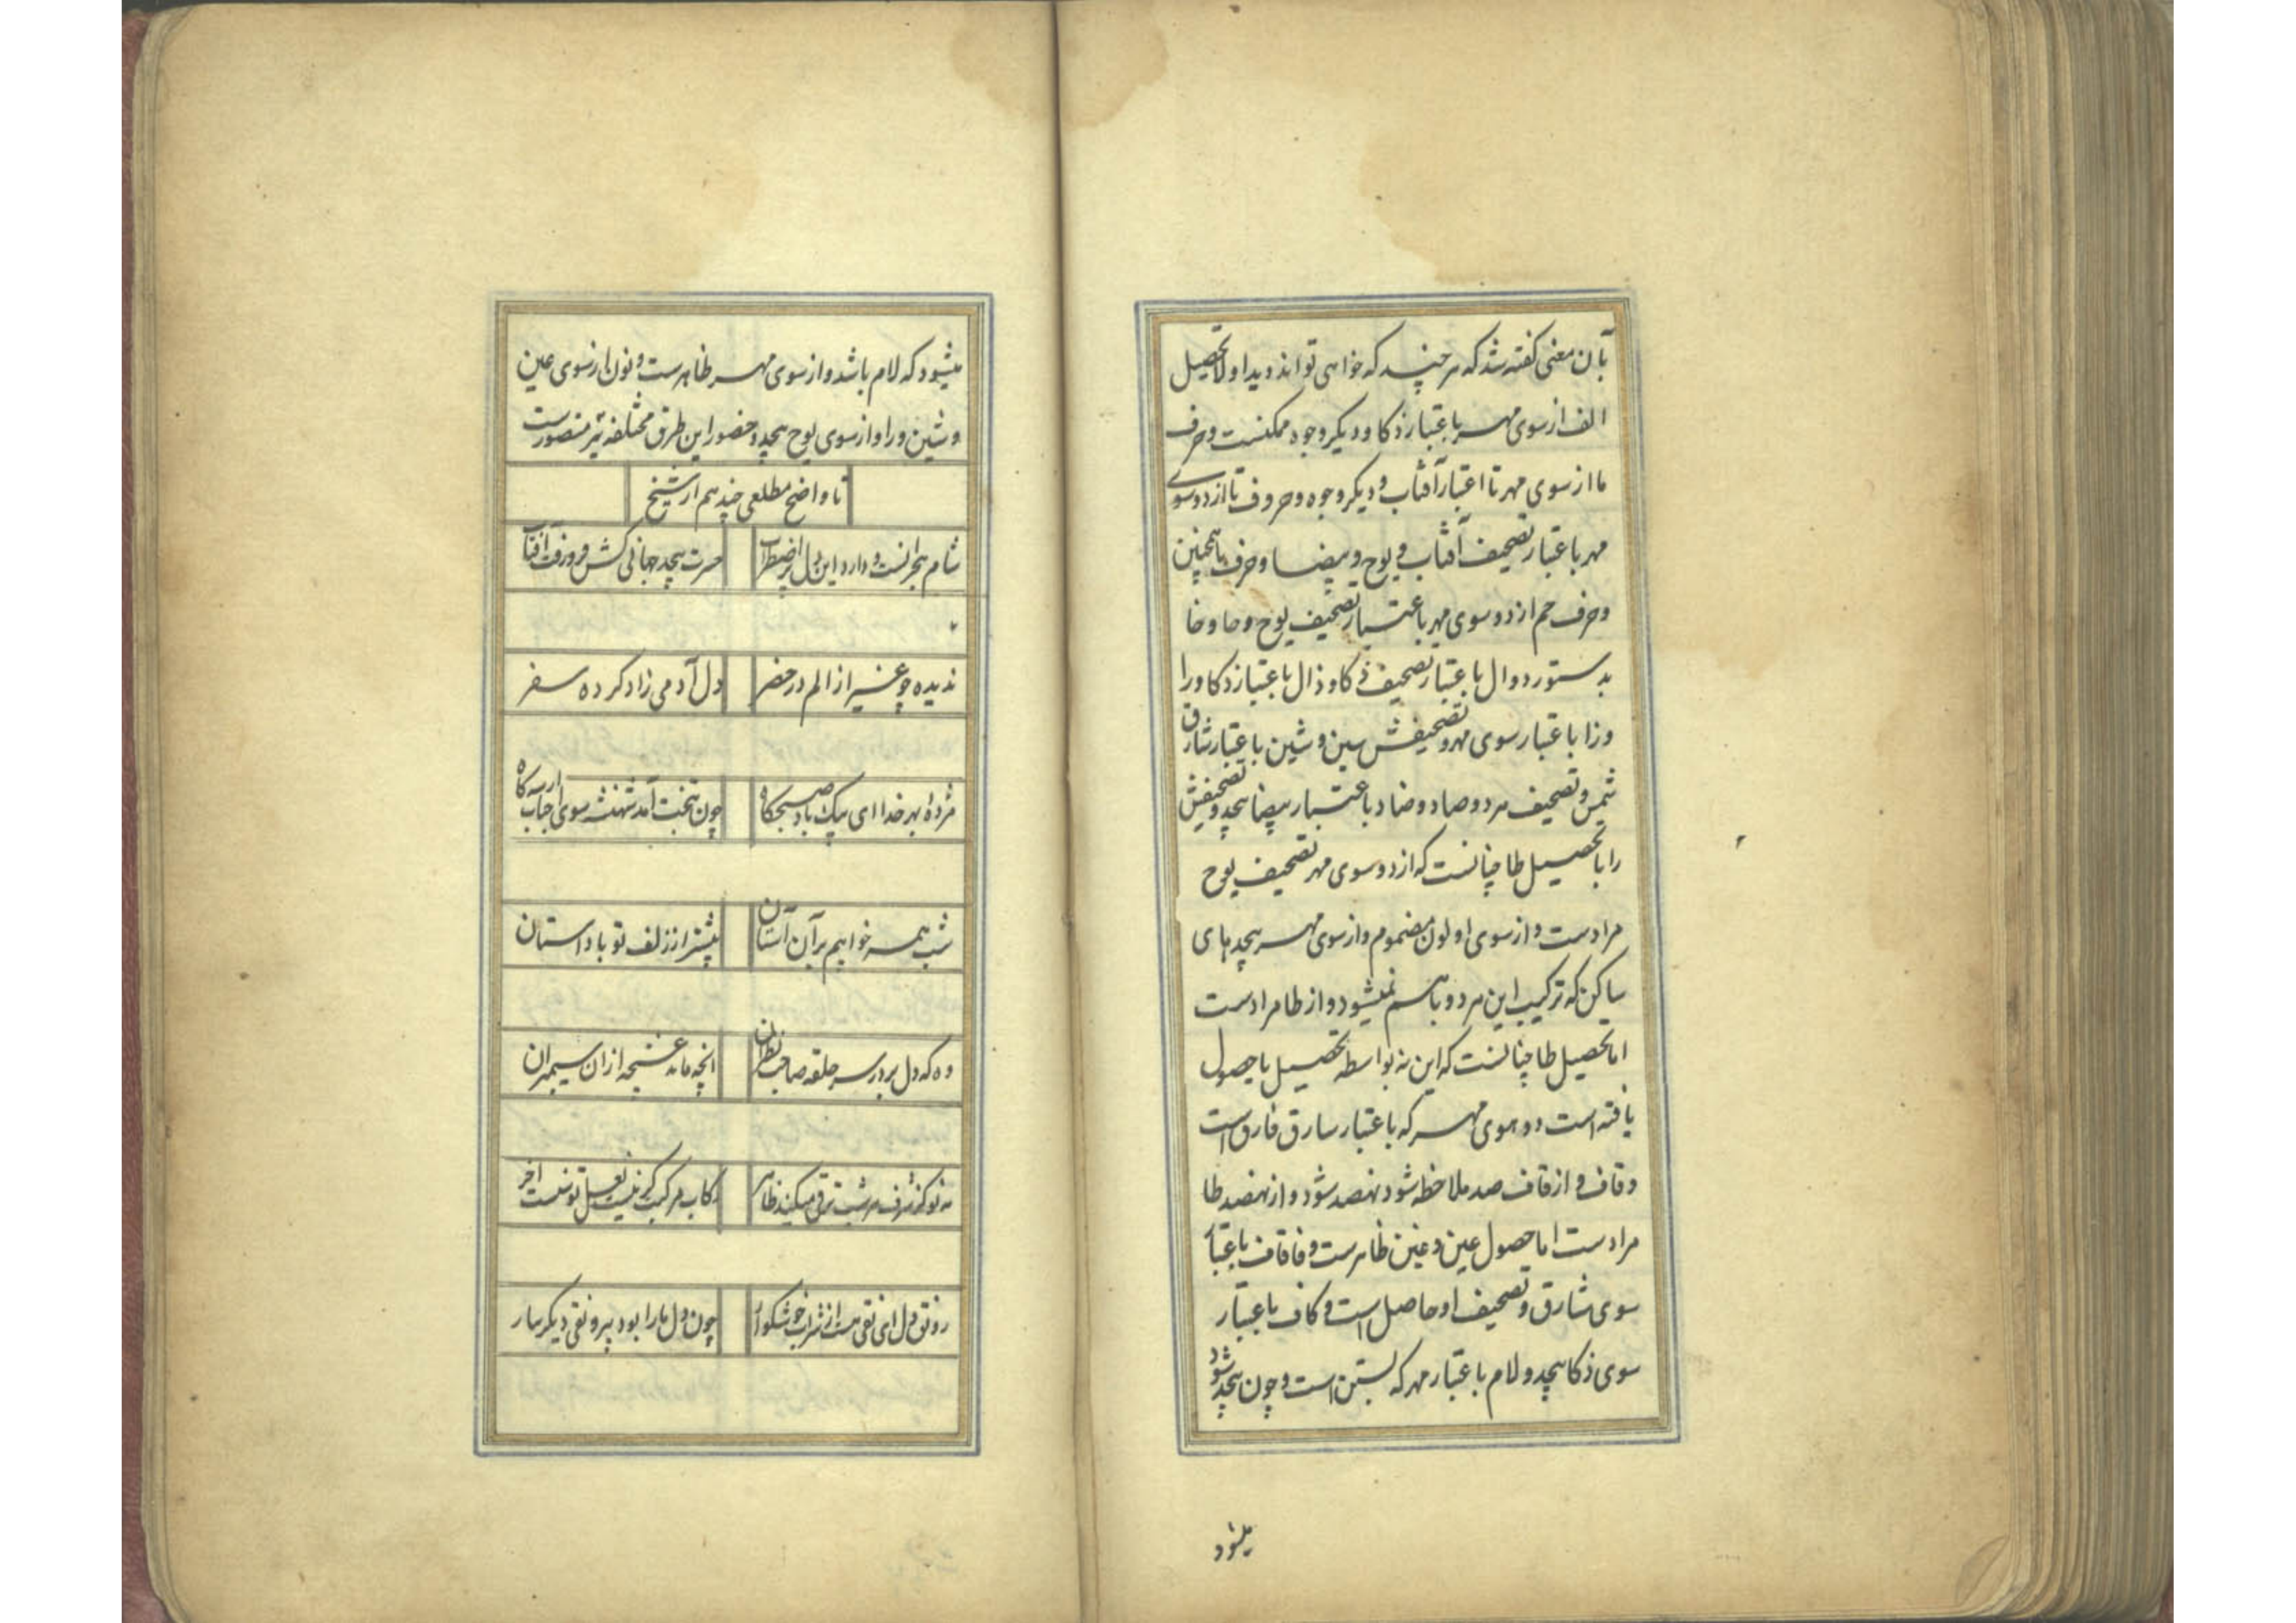 بآن معنی گفته شد که هر چند که خواهی تواند دید اولا تحصیل
الف از سوی مهر باعتبار ذکا و دیگر وجوه ممکنست و حرف
ما از سوی مهر تا اعتبار آفتاب و دیگر وجوه و حروف تا از دو سوی
مهر باعتبار تصحیف آفتاب و یوح و بیضا و حرف همچنین
و حرف حم از دو سوی مهر باعتبار تصحیف یوح و حا و خا
بدستور و دال باعتبار تصحیف ذکا و ذال باعتبار ذکا و را
و زا باعتبار سوی مهر و تصحیفش سین و شین باعتبار شارق
شمس و تصحیف هر دو صاد و ضاد باعتبار بیضا بیحد و تصحیفش
را با تحصیل طا چنانست که از دو سوی مهر تصحیف یوح
مرادست و از سوی اولون مضموم و از سوی مهر بیحد های
ساکن که ترکیب این هر دو باهم نمیشود و از طا مرادست
اما تحصیل ظا چنانست که این نه بواسطه تحصیل با حصول
یافته است دو سوی مهر که باعتبار سارق فارق است
و قاف و از قاف صد ملاحظه شود نهصد شود و از نهصد ظا
مرادست اما حصول عین و غین ظاهرست و فا قاف باعتبار
سوی شارق و تصحیف او حاصل است و کاف باعتبار
سوی ذکا بیحد و لام باعتبار مهر که بستن است و چون بیحد شود
میشود
میشود که لام باشد و از سوی مهر ظاهرست و نون از سوی عین
و شین و را و از سوی یوح بیحد و حضور این طرق مختلفه نیز متصورست
تا واضح مطلعی چند هم از شیخ
شام هجرانست و دارد این دل پر اضطراب حسرت بیحد جهانی کش فروزفت آفتاب
ندیده چو غیر از الم در حضر دل آدمی زاد کرده سفر
مژده بهر خدا ای پیک باد صبحگاه چون بتخت آمد شهنشه سوی اجآب ار سه گاه
شب همه خواهیم بر آن آستان پیشتر از زلف تو باد آستان
وه که دل برد سر حلقه صاحب نظران انچه ماند غنیحه از ان سیمبران
مه نو کز شرف هر شب ترقی میکند ظاهر رکاب مرکبت گر نیست نعل توسنت آخر
رونق دل ای نقی هست از شراب خوشگوار چون دل ما را بود بیرونقی دیگر بیار